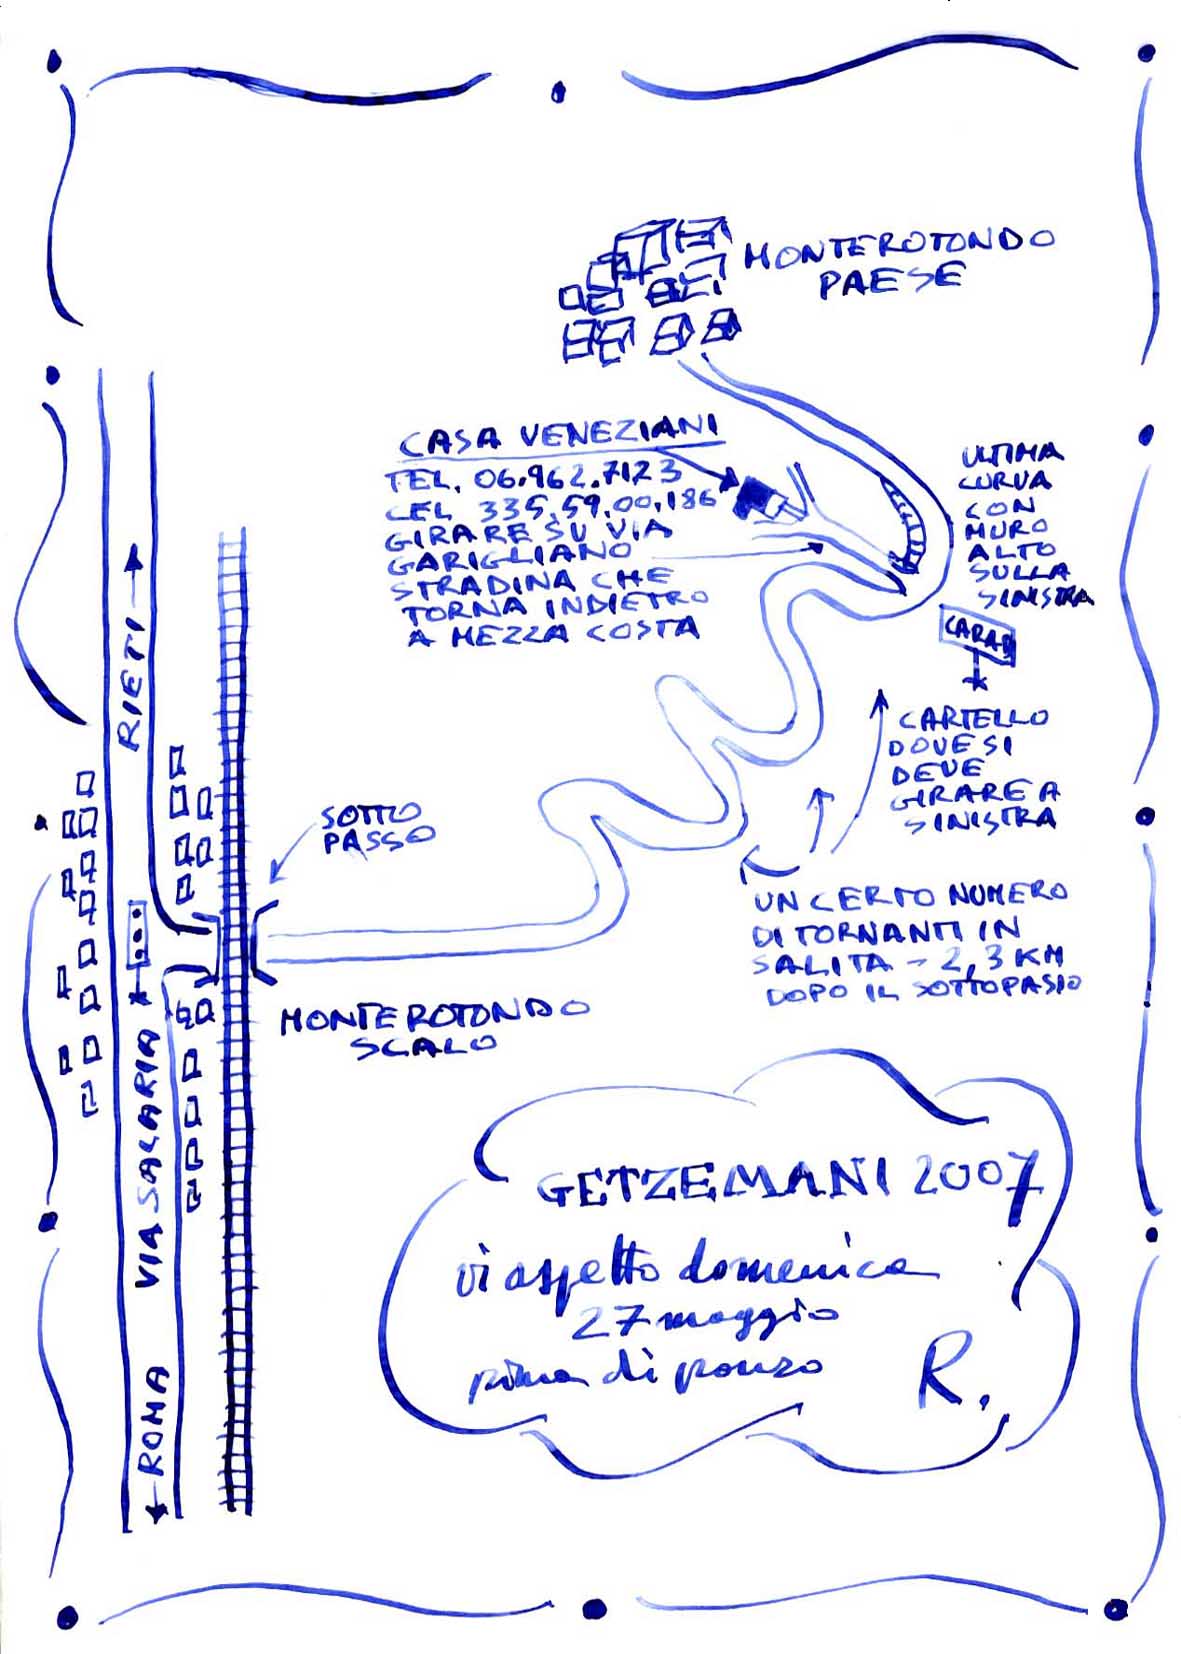 MONTEROTONDO
PAESE
CASA VENEZIANI
TEL. 06.962.7123
CEL 335.59.00.186
GIRARE SU VIA
GARIGLIANO
STRADINA CHE
TORNA INDIETRO
A MEZZA COSTA
ULTIMA
CURVA
CON
MURO
ALTO
SULLA
SINISTRA
CARAB
CARTELLO
DOVE SI
DEVE
GIRARE A
SINISTRA
RIETI
SOTTO
PASSO
UN CERTO NUMERO
DI TORNANTI IN
SALITA - 2,3 KM
DOPO IL SOTTOPASSO
MONTEROTONDO
SCALO
VIA SALARIA
ROMA
GETZEMANI 2007
vi aspetto domenica
27 maggio
prima di pranzo
R.